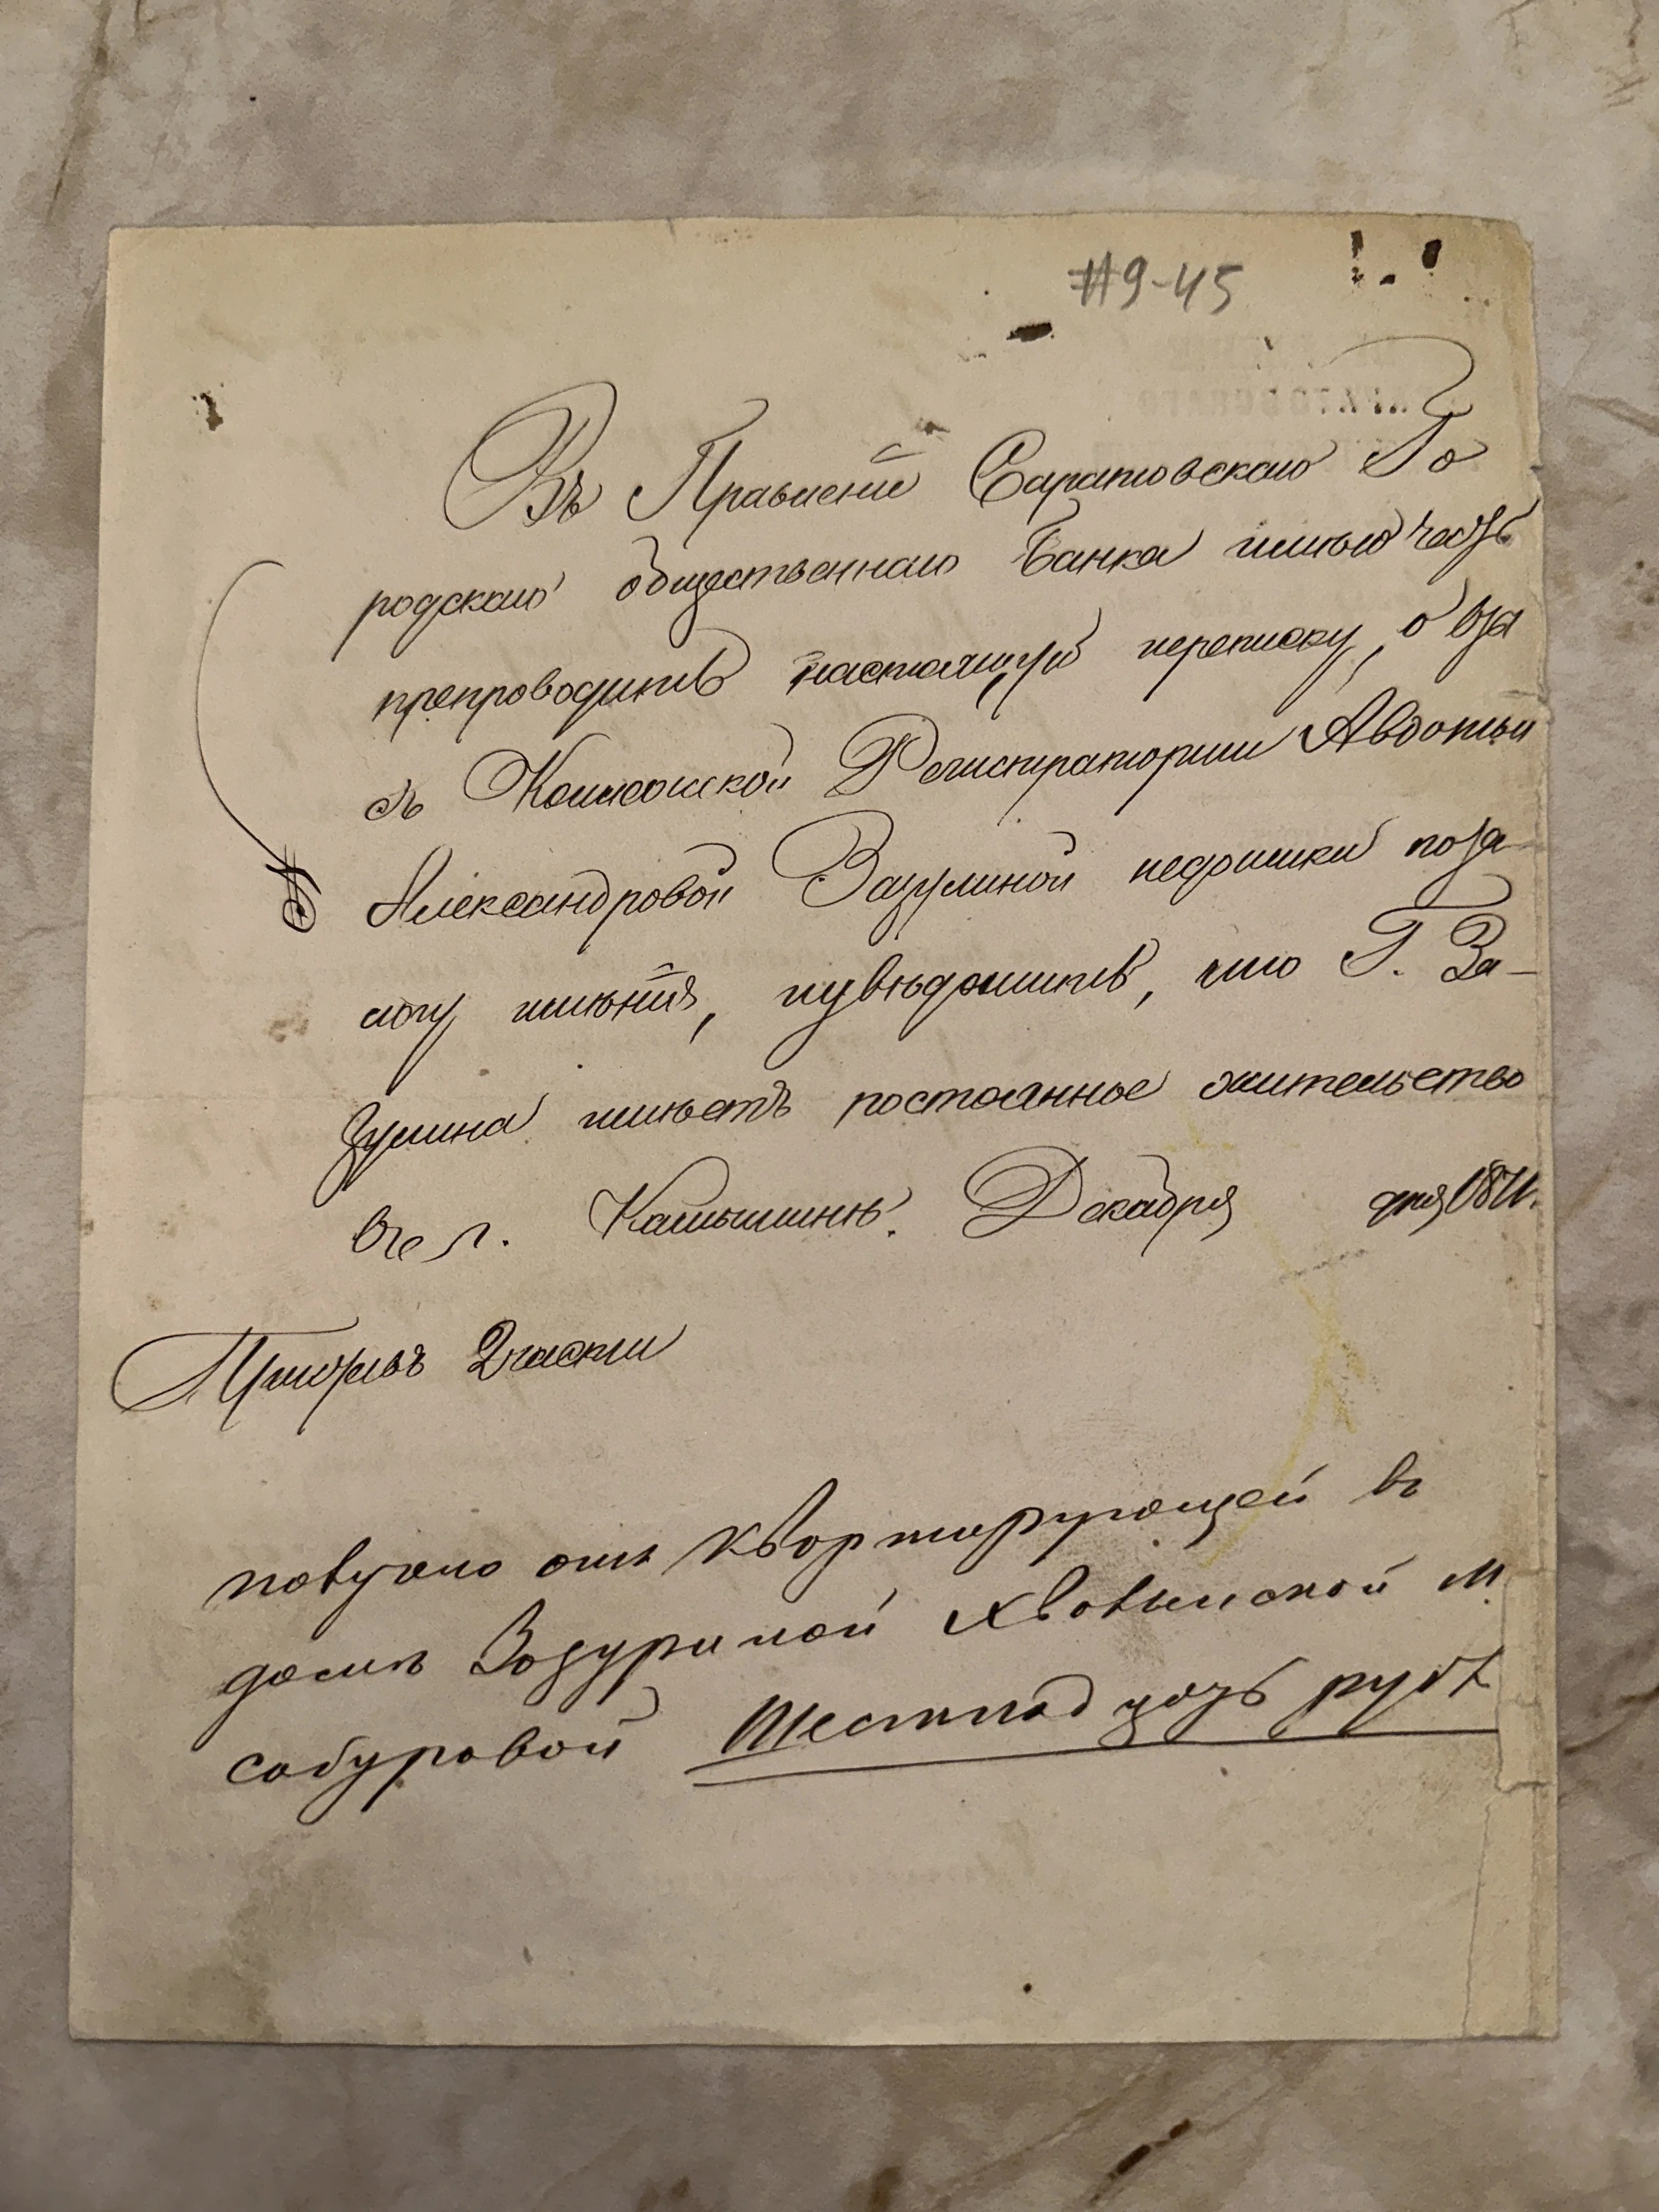 #9-45
Въ Правленіе Саратовскаго Го
родскаго общественнаго Банка имѣю честь
препроводить настоящую переписку, о вза
съ Коллежской Регистраторши Авдотьи
Александровой Зазулиной недоимки по за-
логу имѣнія, и увѣдомить, что Г. За-
зулина имѣетъ постоянное жительство
въ г. Камышинѣ. Декабря дня
Приставъ 2 части
получено отъ квортирующей въ
доме Зазуриной Хвалынской м.
сабуровой Шестнадцать руб